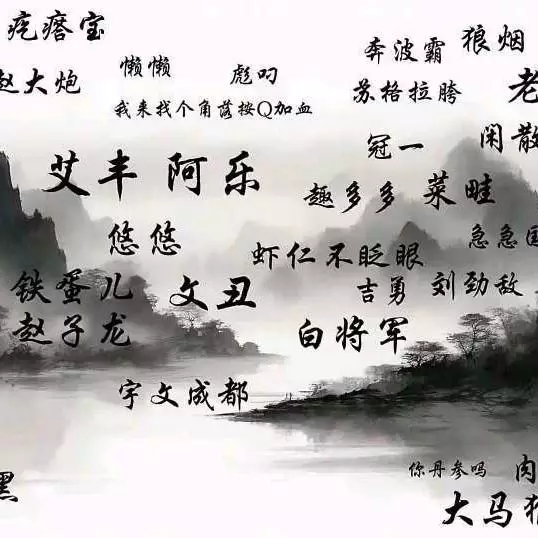 疙瘩宝
赵大炮
懒懒
彪叼
奔波霸
狼烟
苏格拉胯
老
我来找个角落按Q加血
冠一
闲散
艾丰
阿乐
趣多多
菜畦
悠悠
虾仁不眨眼
急急国
铁蛋儿
文丑
吉勇
刘劲敌
赵子龙
白将军
宇文成都
黑
你丹参吗
肉
大马猴